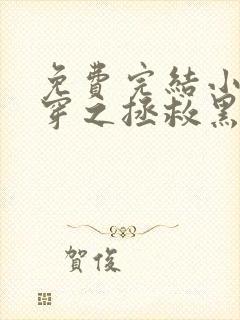 免費完結小
穿之拯救黑
賀俊